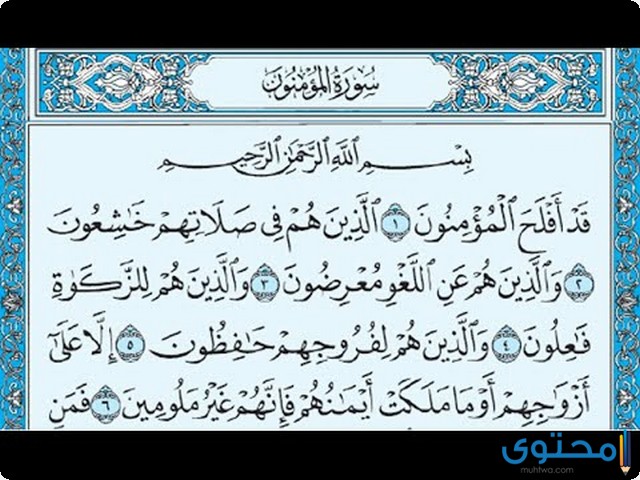 سُورَةُ المُؤْمِنُونَ
بِسْمِ اللَّهِ الرَّحْمَٰنِ الرَّحِيمِ
قَدْ أَفْلَحَ الْمُؤْمِنُونَ ١ الَّذِينَ هُمْ فِي صَلَاتِهِمْ خَاشِعُونَ
٢ وَالَّذِينَ هُمْ عَنِ اللَّغْوِ مُعْرِضُونَ ٣ وَالَّذِينَ هُمْ لِلزَّكَوٰةِ
فَاعِلُونَ ٤ وَالَّذِينَ هُمْ لِفُرُوجِهِمْ حَافِظُونَ ٥ إِلَّا عَلَىٰ
أَزْوَاجِهِمْ أَوْ مَا مَلَكَتْ أَيْمَانُهُمْ فَإِنَّهُمْ غَيْرُ مَلُومِينَ ٦ فَمَنِ
محتوى
muhtwa.com